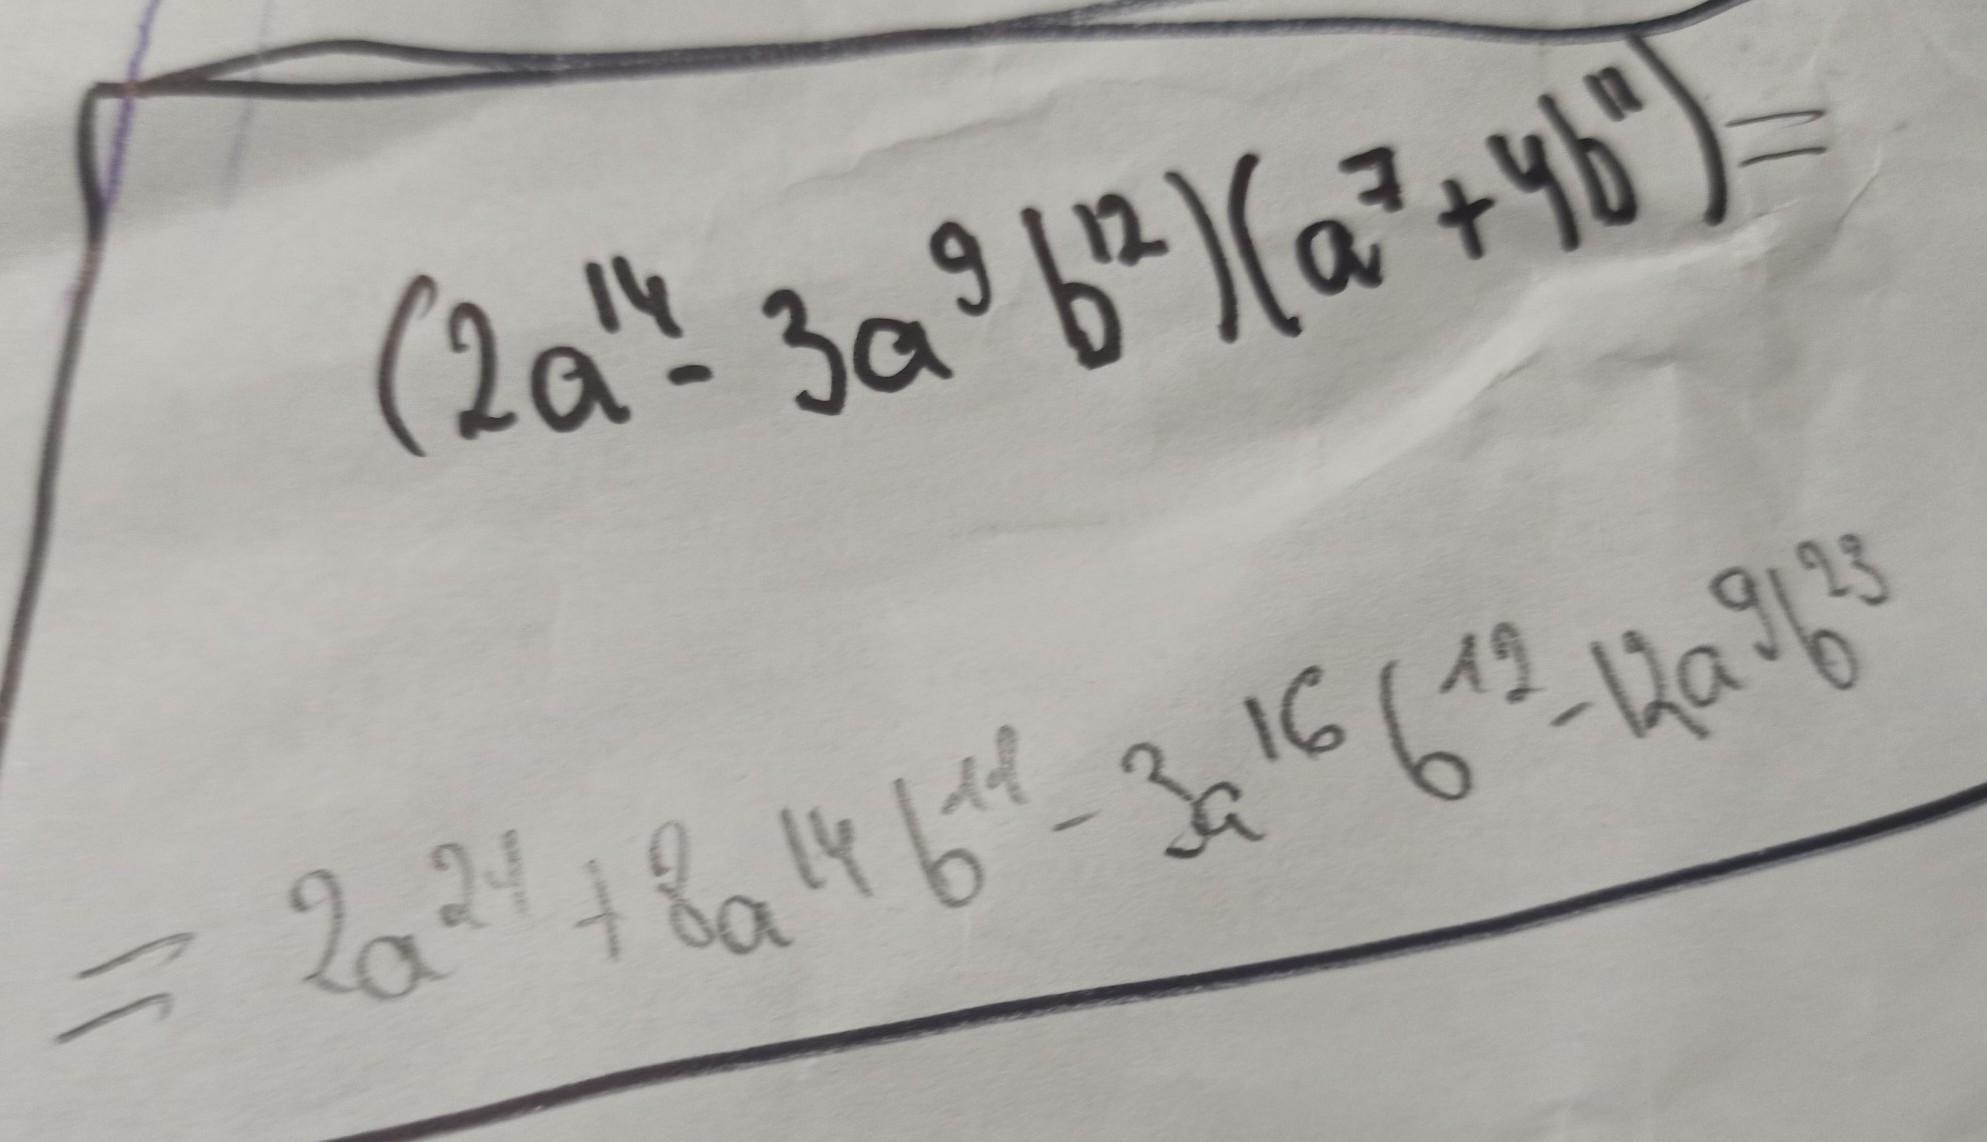 (2a¹⁴ - 3a⁹b¹²)(a⁷ + 4b¹¹) =
= 2a²¹ + 8a¹⁴b¹¹ - 3a¹⁶b¹² - 12a⁹b²³